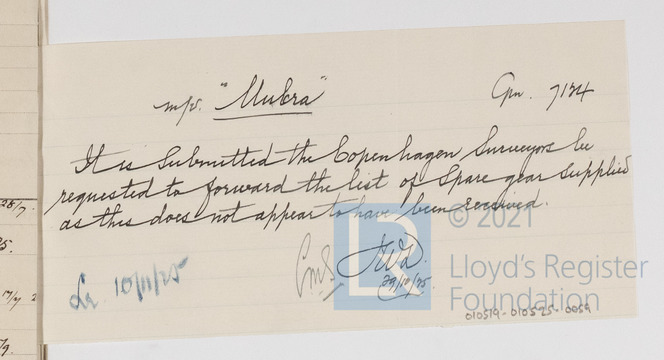 m/v. "Mubra" Cpn. 7124
It is submitted the Copenhagen Surveyors be
requested to forward the list of Spare gear supplied
as this does not appear to have been received.
29/10/25
Lr. 10/11/25
© 2021
LR
Lloyd's Register
Foundation
010519-010525-0059